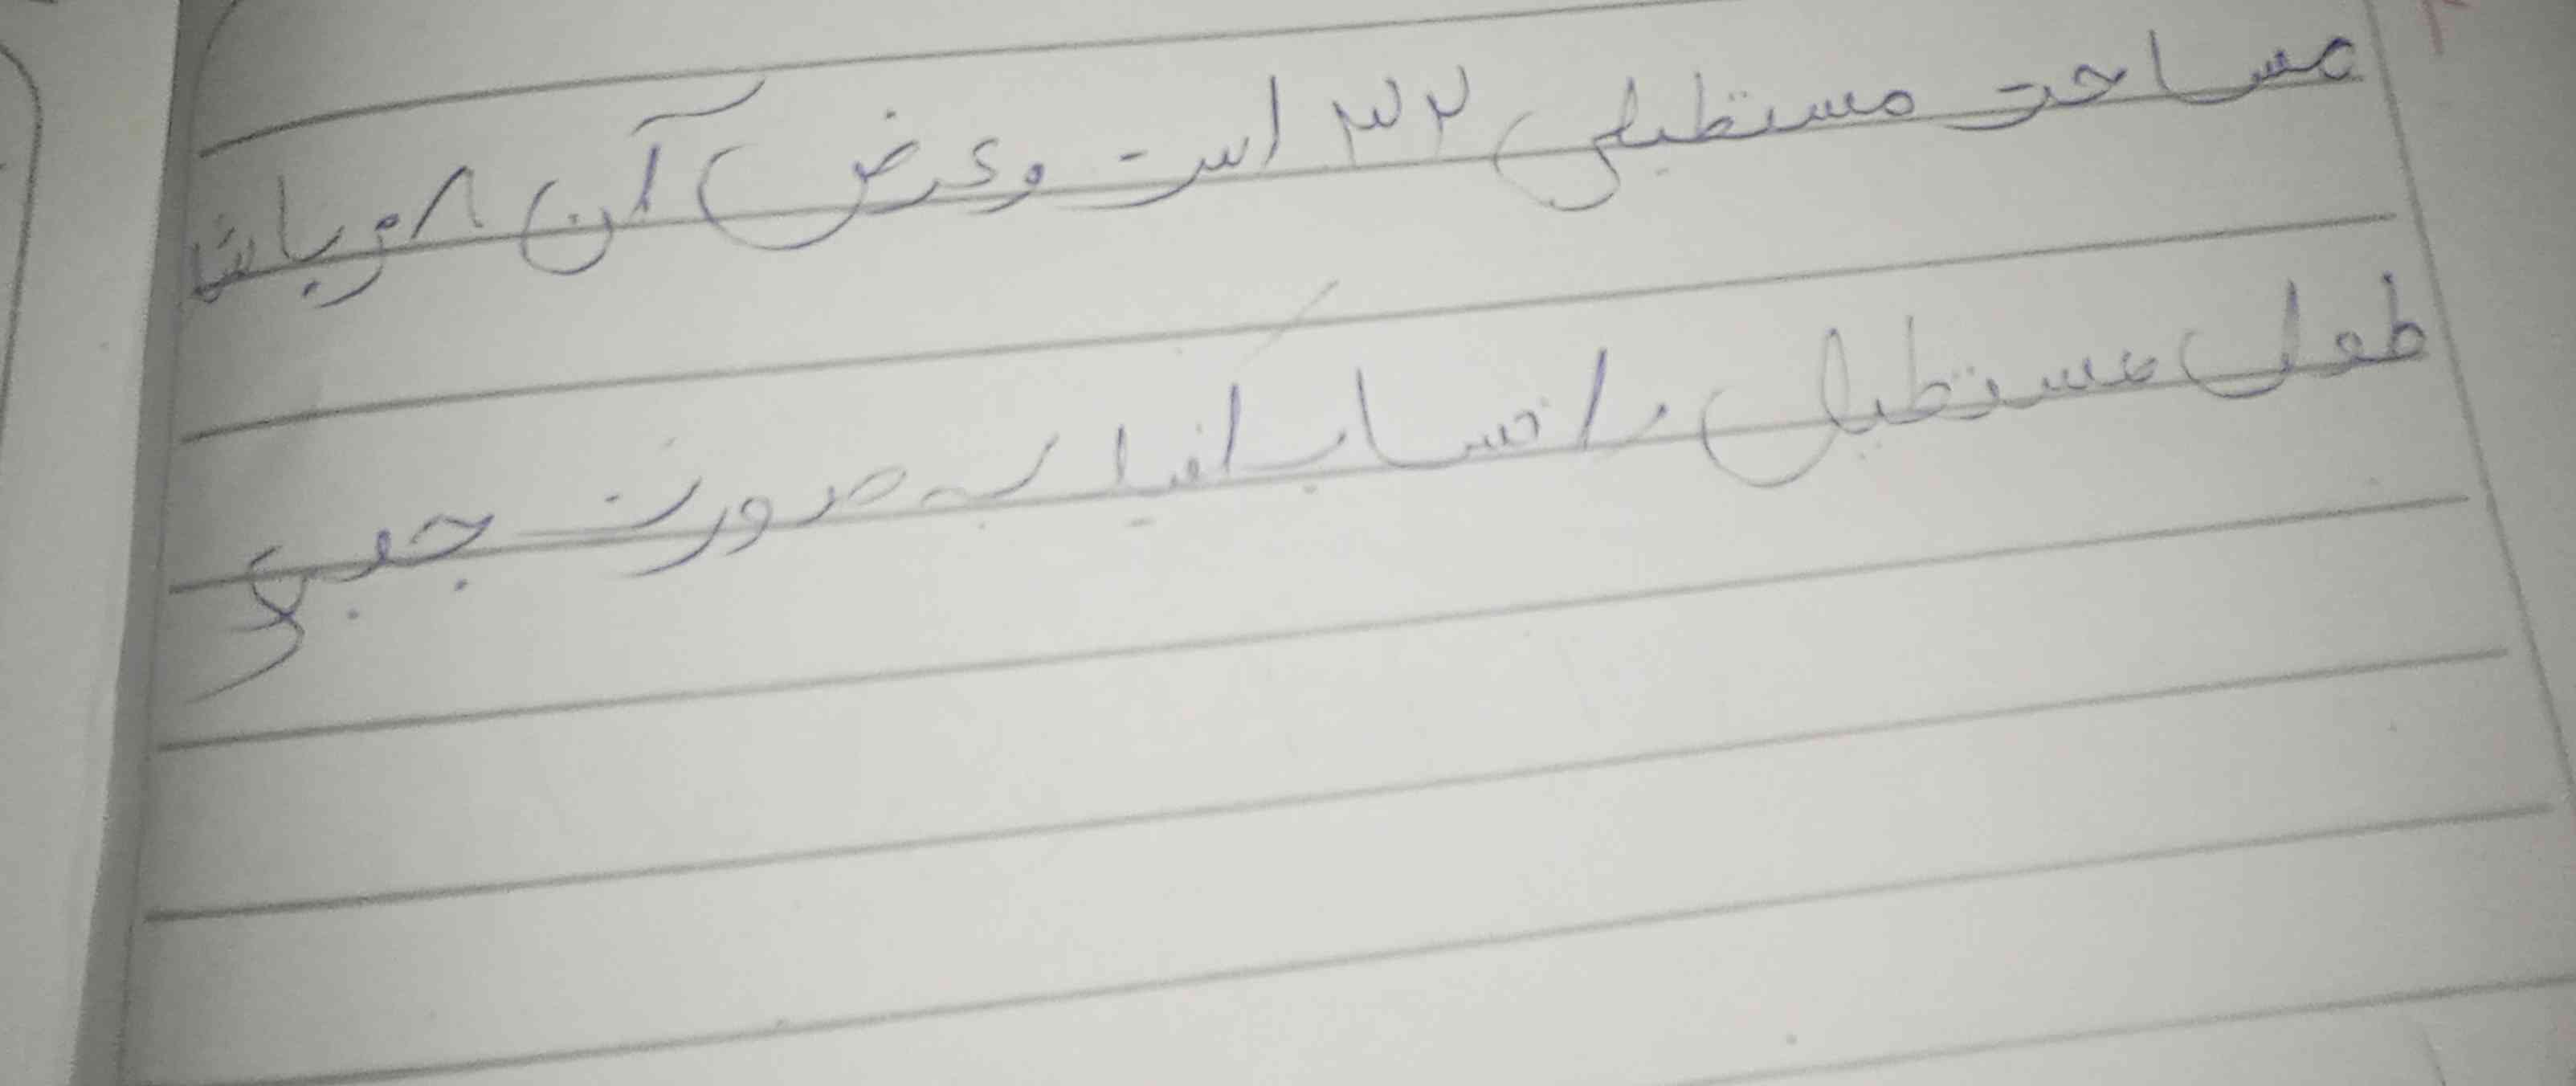 مساحت مستطیلی ۳۲ است و عرض آن ۸ و باشد
طول مستطیل را حساب کنید به صورت جبری